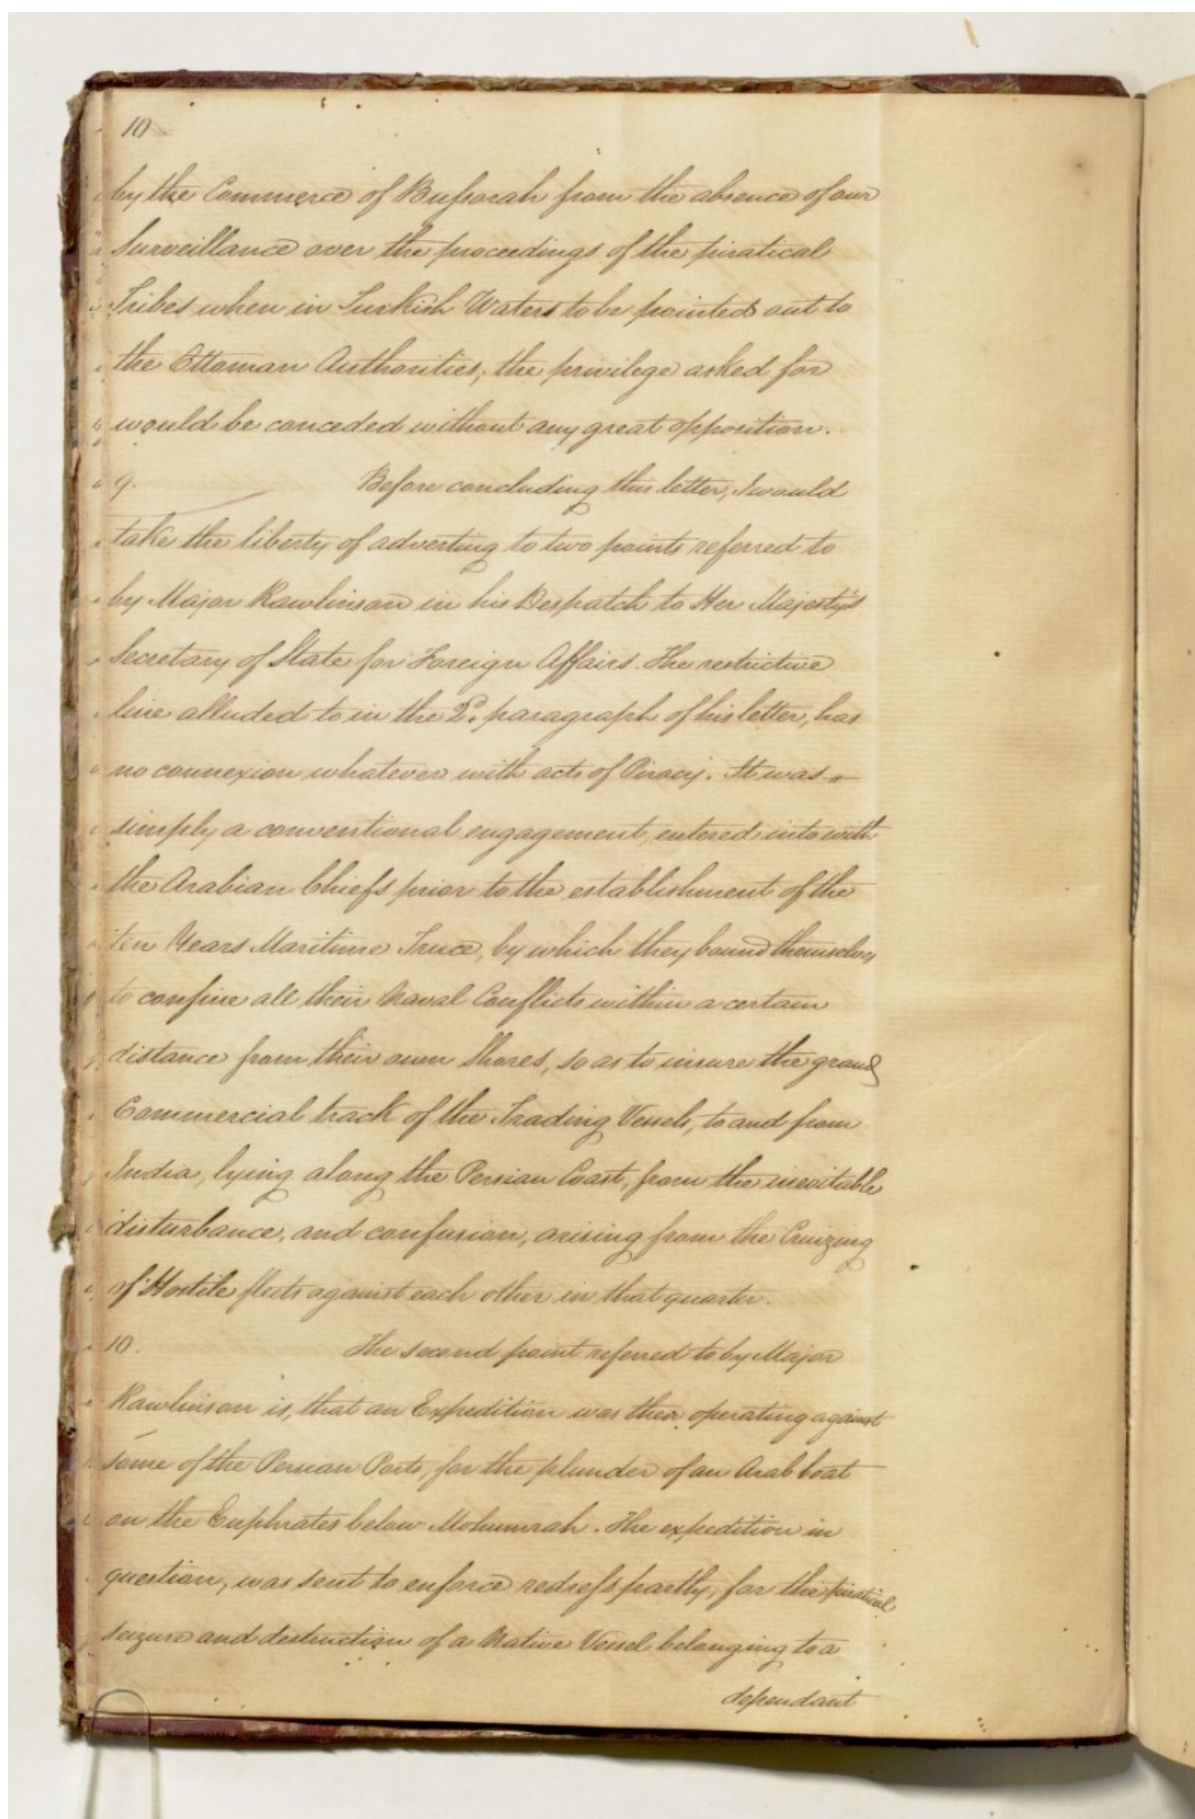 10
by the Commerce of Bussorah from the absence of our
Surveillance over the proceedings of the piratical
Tribes when in Turkish Waters to be pointed out to
the Ottoman Authorities, the privilege asked for
would be conceded without any great opposition.
9. Before concluding this letter, I would
take the liberty of adverting to two points referred to
by Major Rawlinson in his Despatch to Her Majesty's
Secretary of State for Foreign Affairs. The restrictive
line alluded to in the 2. paragraph of his letter, has
no connexion whatever with acts of Piracy. It was
simply a conventional engagement, entered into with
the Arabian Chiefs prior to the establishment of the
ten Years Maritime Truce, by which they bound themselves
to confine all their Naval Conflicts within a certain
distance from their own Shores, so as to insure the grand
Commercial track of the Trading Vessels, to and from
India, lying along the Persian Coast, from the inevitable
disturbance, and confusion, arising from the Cruizing
of Hostile fleets against each other in that quarter.
10. The second point referred to by Major
Rawlinson is, that an Expedition was then operating against
some of the Persian Ports, for the plunder of an Arab boat
on the Euphrates below Mohumrah. The expedition in
question, was sent to enforce redress partly, for the piratical
seizure and destruction of a Native Vessel belonging to a
dependant